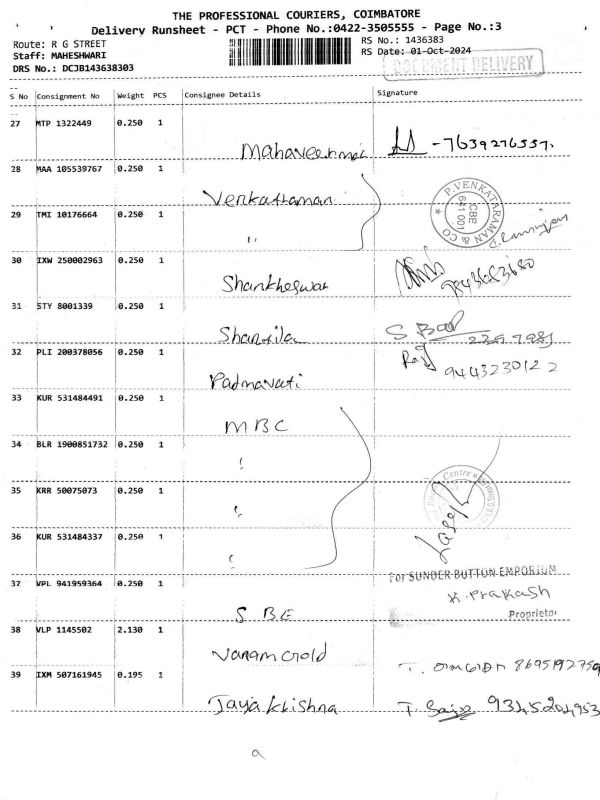 THE PROFESSIONAL COURIERS, COIMBATORE
Delivery Runsheet - PCT - Phone No.:0422-3505555 - Page No.:3
Route: R G STREET
RS No.: 1436383
Staff: MAHESHWARI
RS Date: 01-Oct-2024
DRS No.: DCJB143638303
DOCUMENT DELIVERY
S No Consignment No Weight PCS Consignee Details Signature
27 MTP 1322449 0.250 1
Mahaveer -7639276337.
28 MAA 105539767 0.250 1
Venkattaman
P. VENKATARAMAN & CO
CBE
641 001
29 TMI 10176664 0.250 1
"
30 IXW 250002963 0.250 1
Shankheswar
31 STY 8001339 0.250 1
Shanxila S
32 PLI 200378056 0.250 1
Padmavati Raj 9443230122
33 KUR 531484491 0.250 1
MBC
34 BLR 1900851732 0.250 1
"
35 KRR 50075073 0.250 1
"
Centre
36 KUR 531484337 0.250 1
"
For SUNDER BUTTON EMPORIUM
37 VPL 941959364 0.250 1
K. Prakash
SBE Proprietor
38 VLP 1145502 2.130 1
Vanam Gold T. 8695192759
39 IXM 507161945 0.195 1
Jaya Krishna T. 9345204953
a